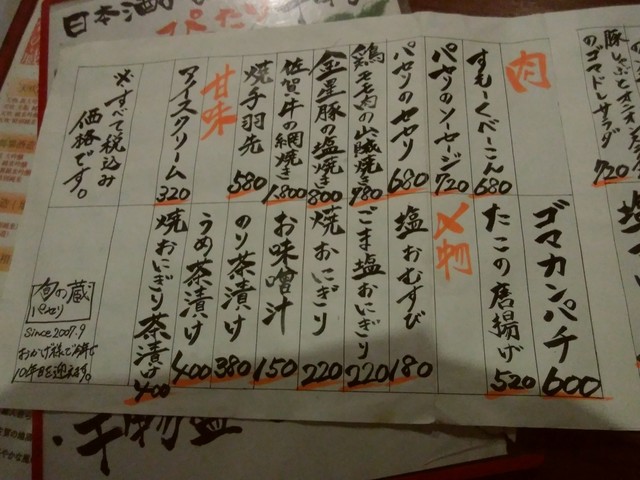 日本酒
ぴったり
豚しゃぶとオニオン
のゴマドレサラダ
720
肉
すもーくべーこん 680
パセリのソーセージ 720
パセリのセセリ 680
鶏モモ肉の山賊焼き 780
金星豚の塩焼き 800
佐賀牛の網焼き 1,800
焼手羽先 580
甘味
アイスクリーム 320
※すべて税込み
価格です。
ゴマカンパチ 600
たこの唐揚げ 520
〆物
塩おむすび 180
ごま塩おにぎり 220
焼おにぎり 220
お味噌汁 150
のり茶漬け 380
うめ茶漬け 400
焼おにぎり茶漬け 400
旬の蔵
パセリ
since 2007.9
おかげ様で今年で
10年目を迎えます。